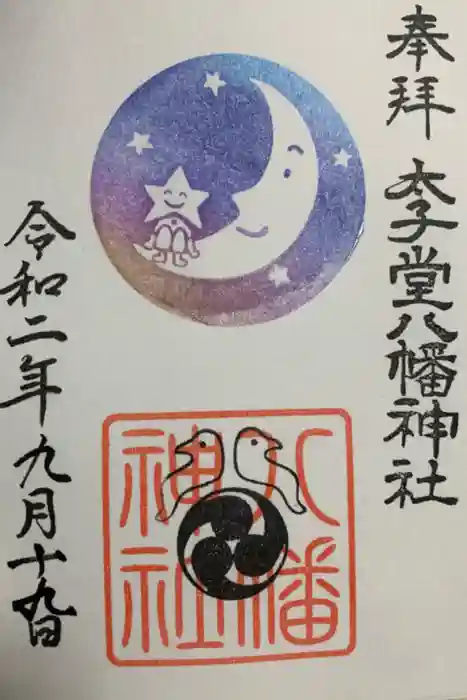 奉拝 太子堂八幡神社
八幡
神社
令和二年九月十九日